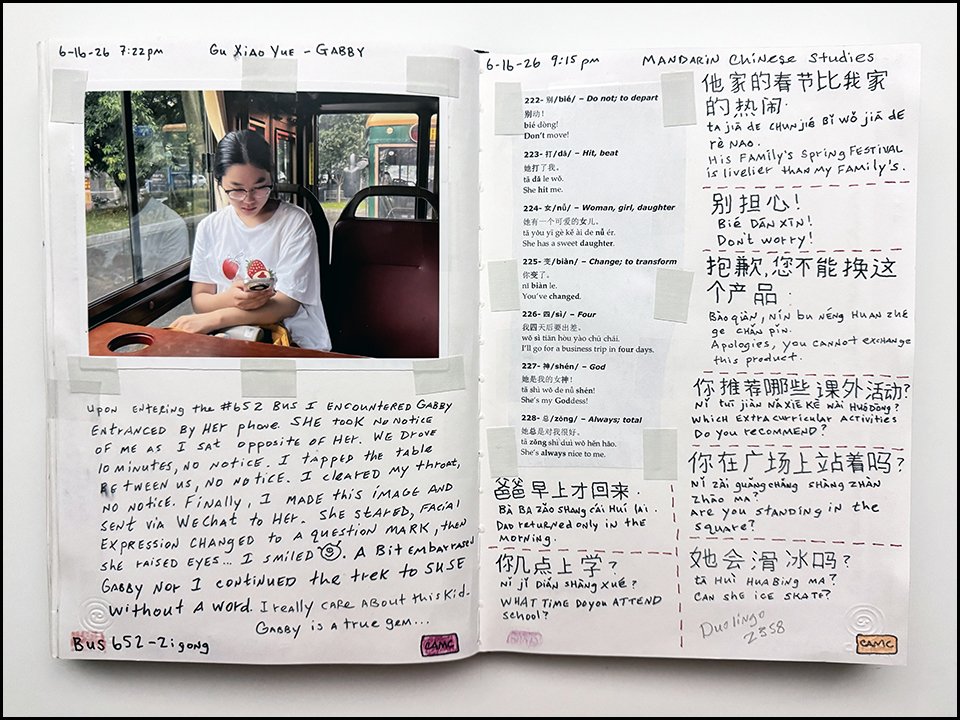 6-16-26 7:22pm Gu Xiao Yue - GABBY
Upon entering the #652 Bus I encountered GABBY
entranced by her phone. She took no notice
of me as I sat opposite of her. We drove
10 minutes, no notice. I tapped the table
between us, no notice. I cleared my throat,
no notice. Finally, I made this image and
sent via WeChat to her. She stared, facial
expression changed to a question mark, then
she raised eyes... I smiled. A bit embarrased
Gabby nor I continued the trek to SUSE
without a word. I really care about this kid.
Gabby is a true gem...
Bus 652-Zigong
CAMC
6-16-26 9:15 pm MANDARIN Chinese Studies
222- 别/bié/ – Do not; to depart
别动!
bié dòng!
Don't move!
223- 打/dǎ/ – Hit, beat
她打了我。
tā dǎ le wǒ.
She hit me.
224- 女/nǚ/ – Woman, girl, daughter
她有一个可爱的女儿。
tā yǒu yī gè kě ài de nǚ ér.
She has a sweet daughter.
225- 变/biàn/ – Change; to transform
你变了。
nǐ biàn le.
You've changed.
226- 四/sì/ – Four
我四天后要出差。
wǒ sì tiān hòu yào chū chāi.
I'll go for a business trip in four days.
227- 神/shén/ – God
她是我的女神!
tā shì wǒ de nǚ shén!
She's my Goddess!
228- 总/zǒng/ – Always; total
她总是对我很好。
tā zǒng shì duì wǒ hěn hǎo.
She's always nice to me.
爸爸早上才回来.
Bà BA zǎo shang cái Huí lai.
Dad returned only in the
morning.
你几点上学?
Nǐ jǐ Diǎn shàng xué?
What time do you attend
school?
他家的春节比我家
的热闹.
tā jiā de chūn jié bǐ wǒ jiā de
rè nao.
His family's Spring Festival
is livelier than my family's.
别担心!
Bié Dān xīn!
Don't worry!
抱歉,您不能换这
个产品.
Bào qiàn, nín bu néng huan zhè
ge chǎn pǐn.
Apologies, you cannot exchange
this product.
你推荐哪些课外活动?
Nǐ tuī jiàn nǎ xiē kè wài huó dòng?
Which extra curricular activities
Do you recommend?
你在广场上站着吗?
Nǐ zài guǎng chǎng shàng zhàn
zhāo ma?
Are you standing in the
square?
她会滑冰吗?
tā Huì Hua bīng ma?
Can she ice skate?
Duolingo
2358
CAMC